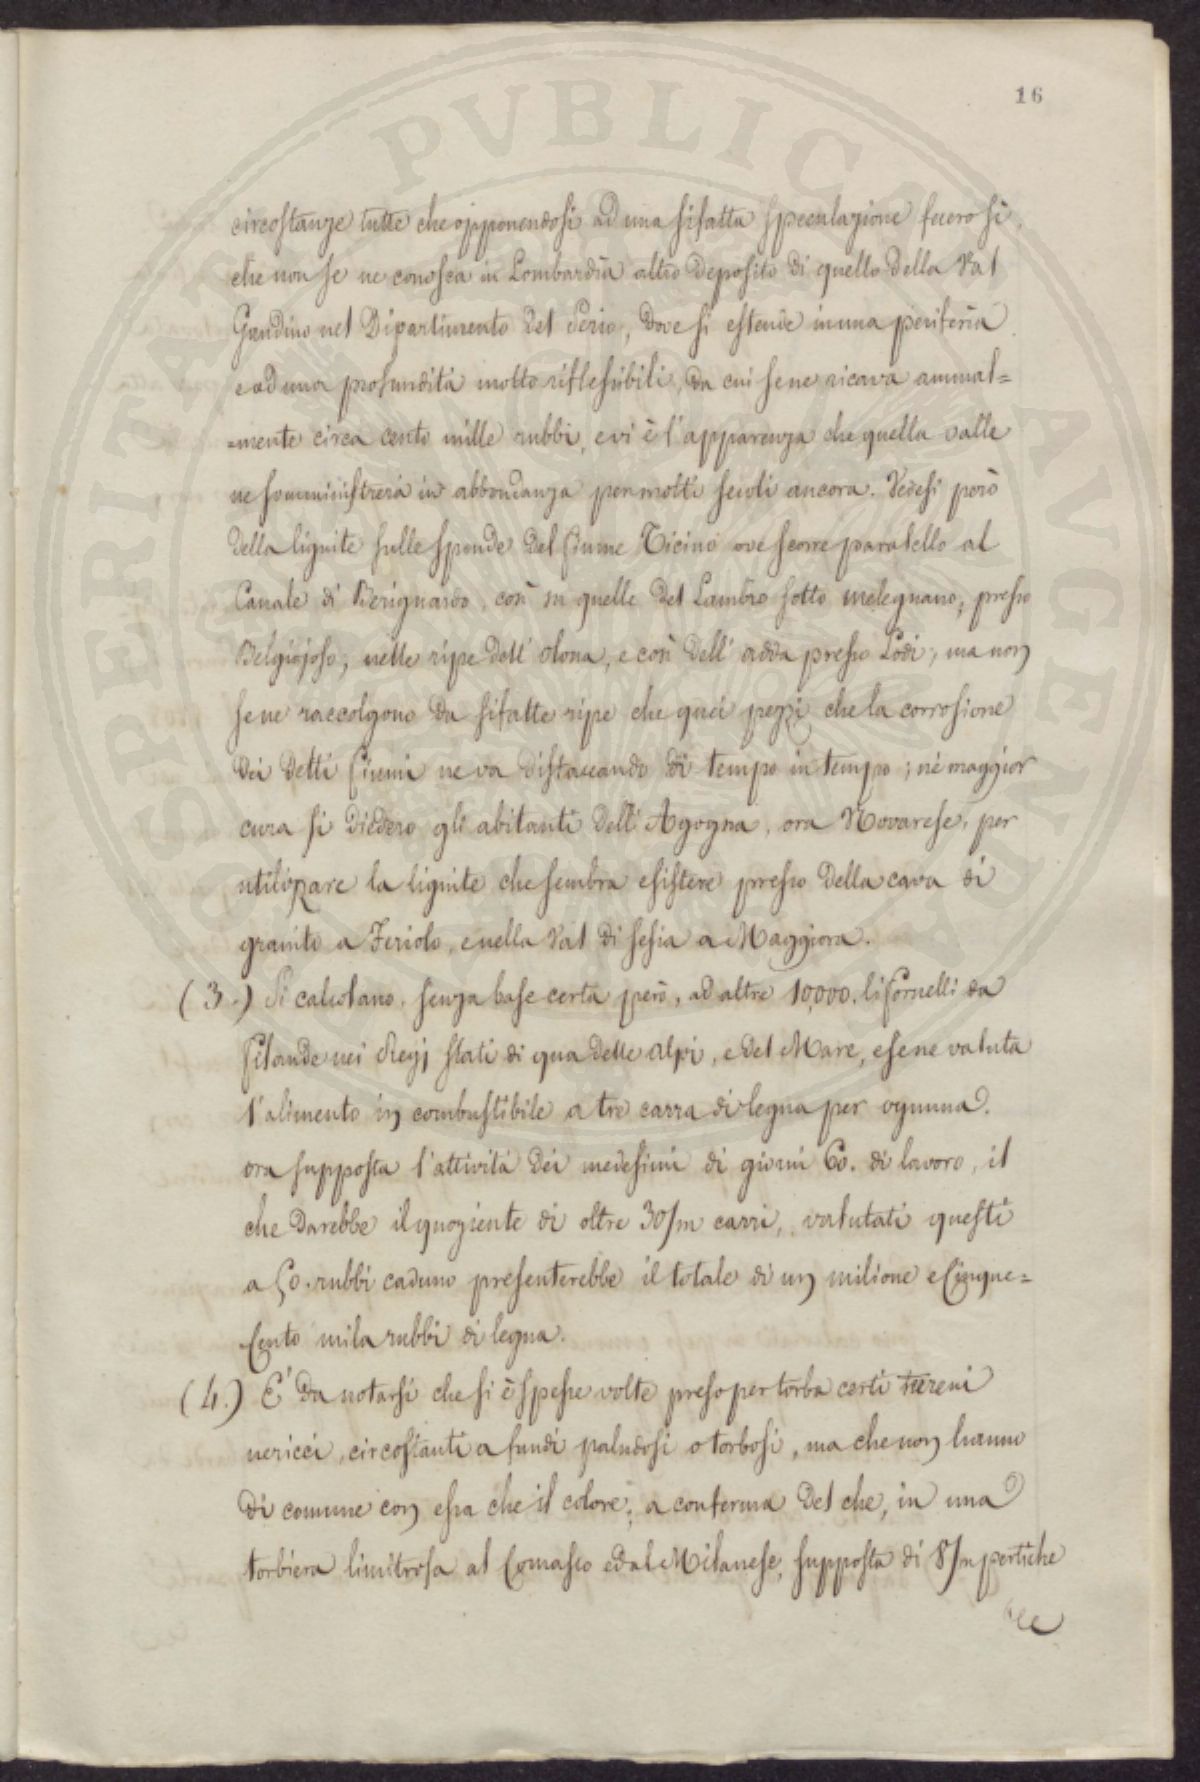 16
circostanze tutte che opponendosi ad una sifatta speculazione fecero sì,
che non se ne conosca in Lombardia altro deposito di quello della Val
Gandino nel Dipartimento del Serio, dove si estende in una periferia
e ad una profondità molto riflessibili, da cui se ne ricava annual=
=mente circa cento mille rubbi, e vi è l'apparenza che quella valle
ne somministrerà in abbondanza per molti secoli ancora. Vedesi però
della lignite sulle sponde del fiume Ticino ove scorre paralello al
Canale di Bereguardo, così in quelle del Lambro sotto melegnano, presso
Belgiojoso, nelle ripe dell' olona, e così dell' adda presso Lodi, ma non
se ne raccolgono da sifatte ripe che quei pezzi che la corrosione
dei detti fiumi ne va distaccando di tempo in tempo; nè maggior
cura si diedero gli abitanti dell' Agogna, ora Novarese, per
utilizzare la lignite che sembra esistere presso della cava di
granito a Feriolo, e nella Val di Sesia a Maggiora.
(3.) Si calcolano, senza base certa però, ad altre 10,000. li fornelli da
filande nei Regj stati di qua delle alpi, e del Mare, e se ne valuta
l'alimento in combustibile a tre carra di legna per ognuna.
ora supposta l'attività dei medesimi di giorni 60. di lavoro, il
che darebbe il quoziente di oltre 30/m carri, valutati questi
a 50. rubbi caduno presenterebbe il totale di un milione e Cinque=
Cento mila rubbi di legna.
(4.) È da notarsi che si è spesse volte preso per torba certi terreni
nericci, circostanti a fundi paludosi o torbosi, ma che non hanno
di comune con essa che il colore; a conferma del che, in una
torbiera limitrofa al Comasco ed al Milanese, supposta di 8/m pertiche